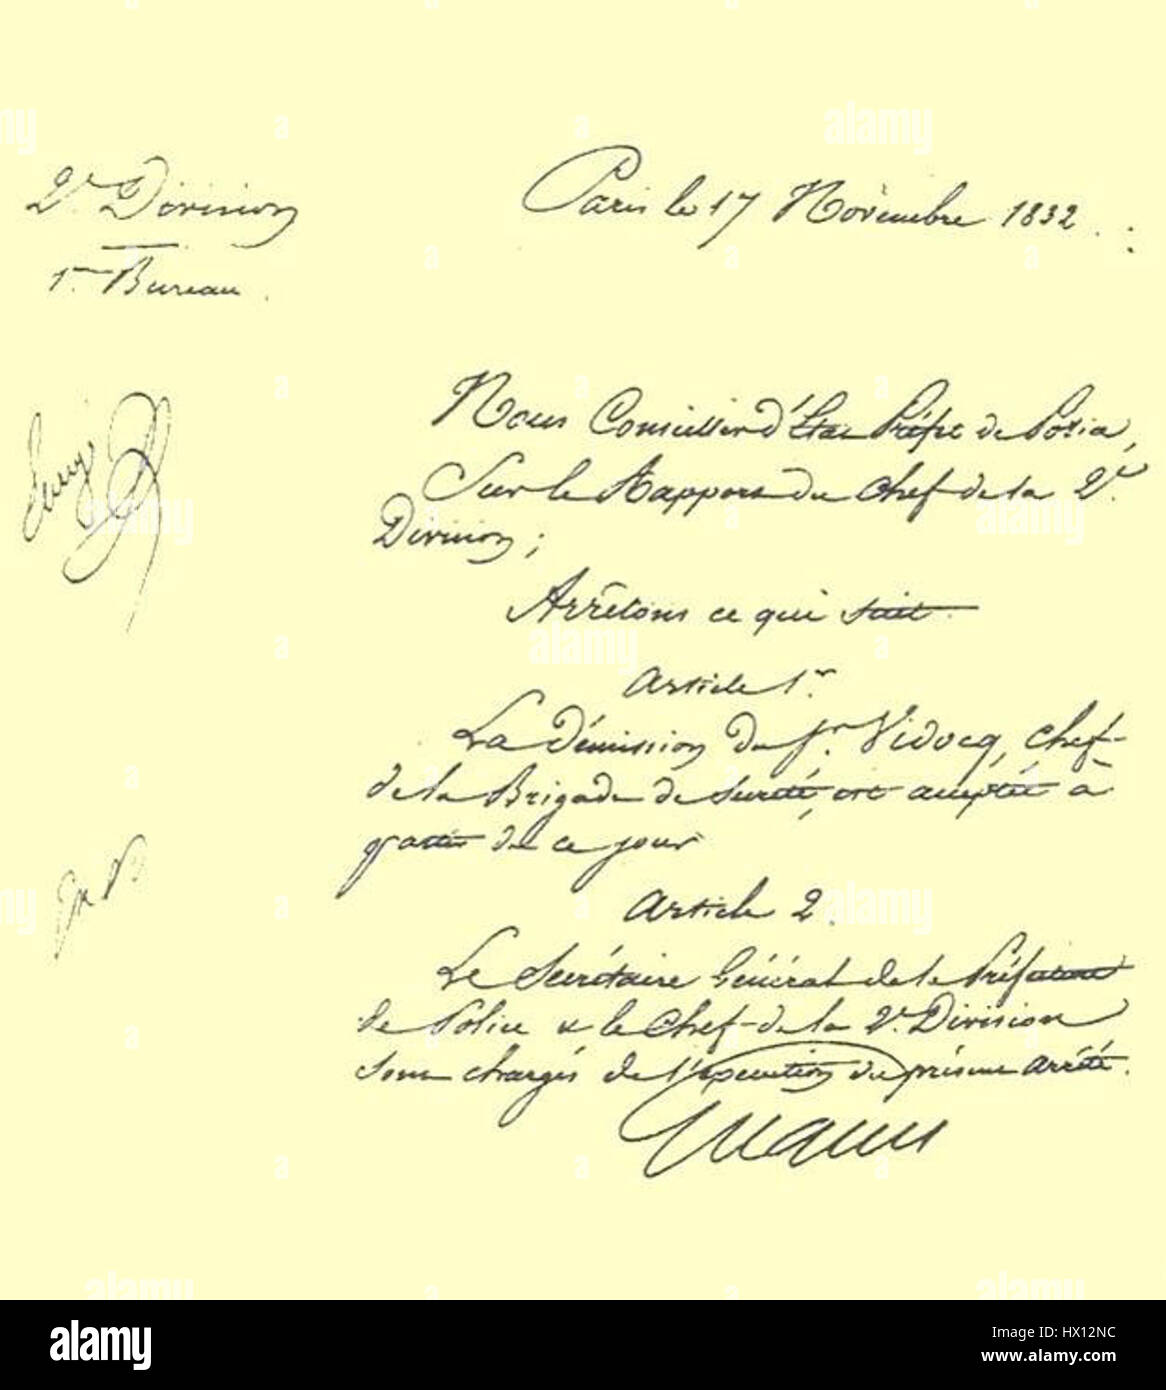 2e. Division
1er Bureau.
Paris le 17 Novembre 1832.
Nous Conseiller d'État Préfet de Police,
Sur le Rapport du Chef de la 2e.
Division;
Arrêtons ce qui suit.
Article 1er.
La Démission du Sr. Vidocq, Chef
de la Brigade de Sureté, est acceptée à
partir de ce jour
Article 2.
Le Secrétaire Général de la Préfecture
de Police & le Chef de la 2e. Division
sont chargés de l'exécution du présent arrêté.
alamy
Image ID: HX12NC
www.alamy.com